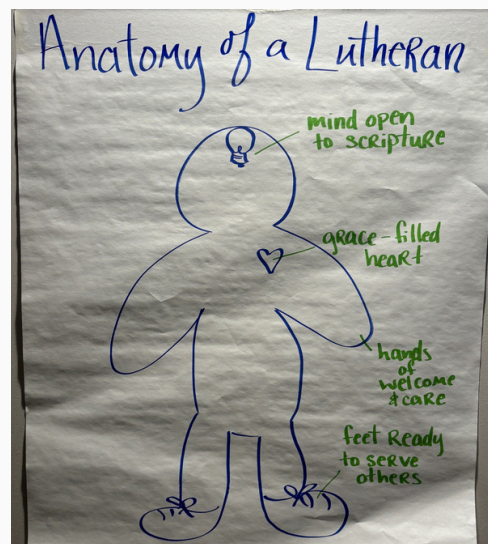 Anatomy of a Lutheran
mind open
to scripture
grace-filled
heart
hands
of
welcome
& care
feet Ready
to serve
others